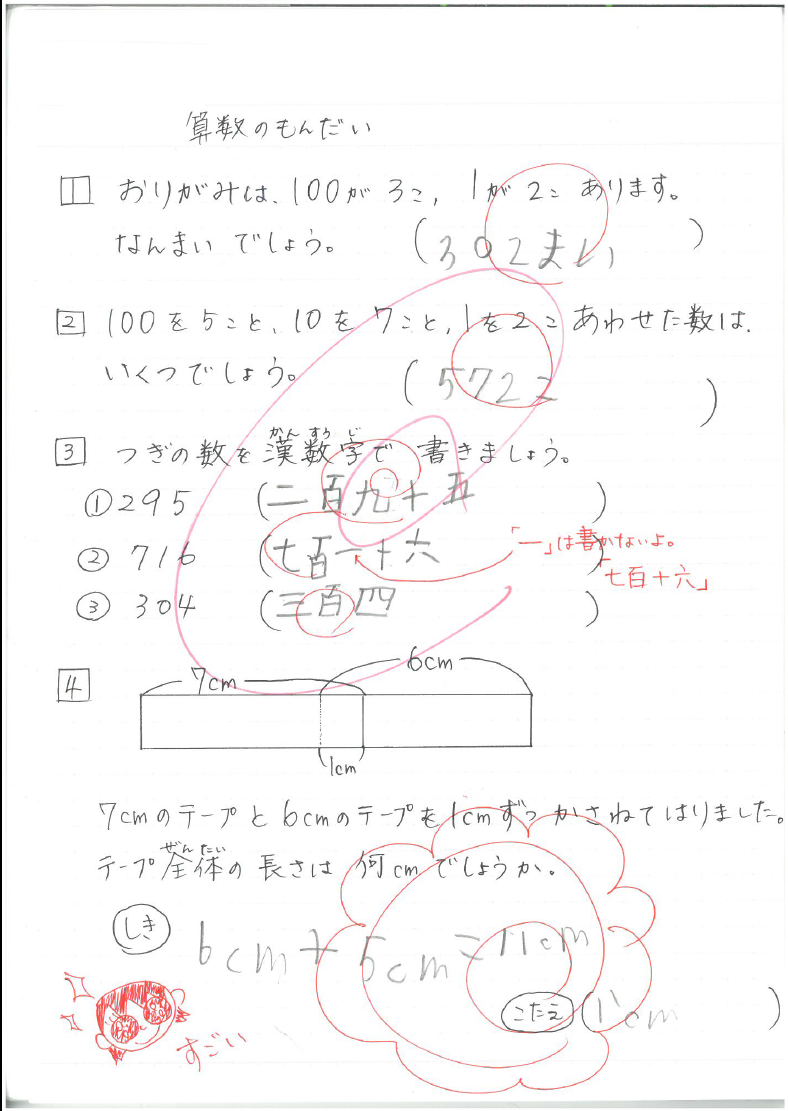 算数のもんだい
1 おりがみは、100が3こ、1が2こ あります。
なんまい でしょう。 (302まい)
2 100を5こと、10を7こと、1を2こ あわせた数は、
いくつでしょう。 (572こ)
かん すう じ
3 つぎの数を漢数字で 書きましょう。
①295 (二百九十五)
② 716 (七百一十六) 「一」は書かないよ。
「七百十六」
③ 304 (三百四)
6cm
4 7cm
1cm
7cmのテープと6cmのテープを1cmずつかさねてはりました。
ぜんたい
テープ全体の長さは 何cmでしょうか。
しき 6cm+5cm=11cm
こたえ (11cm)
すごい